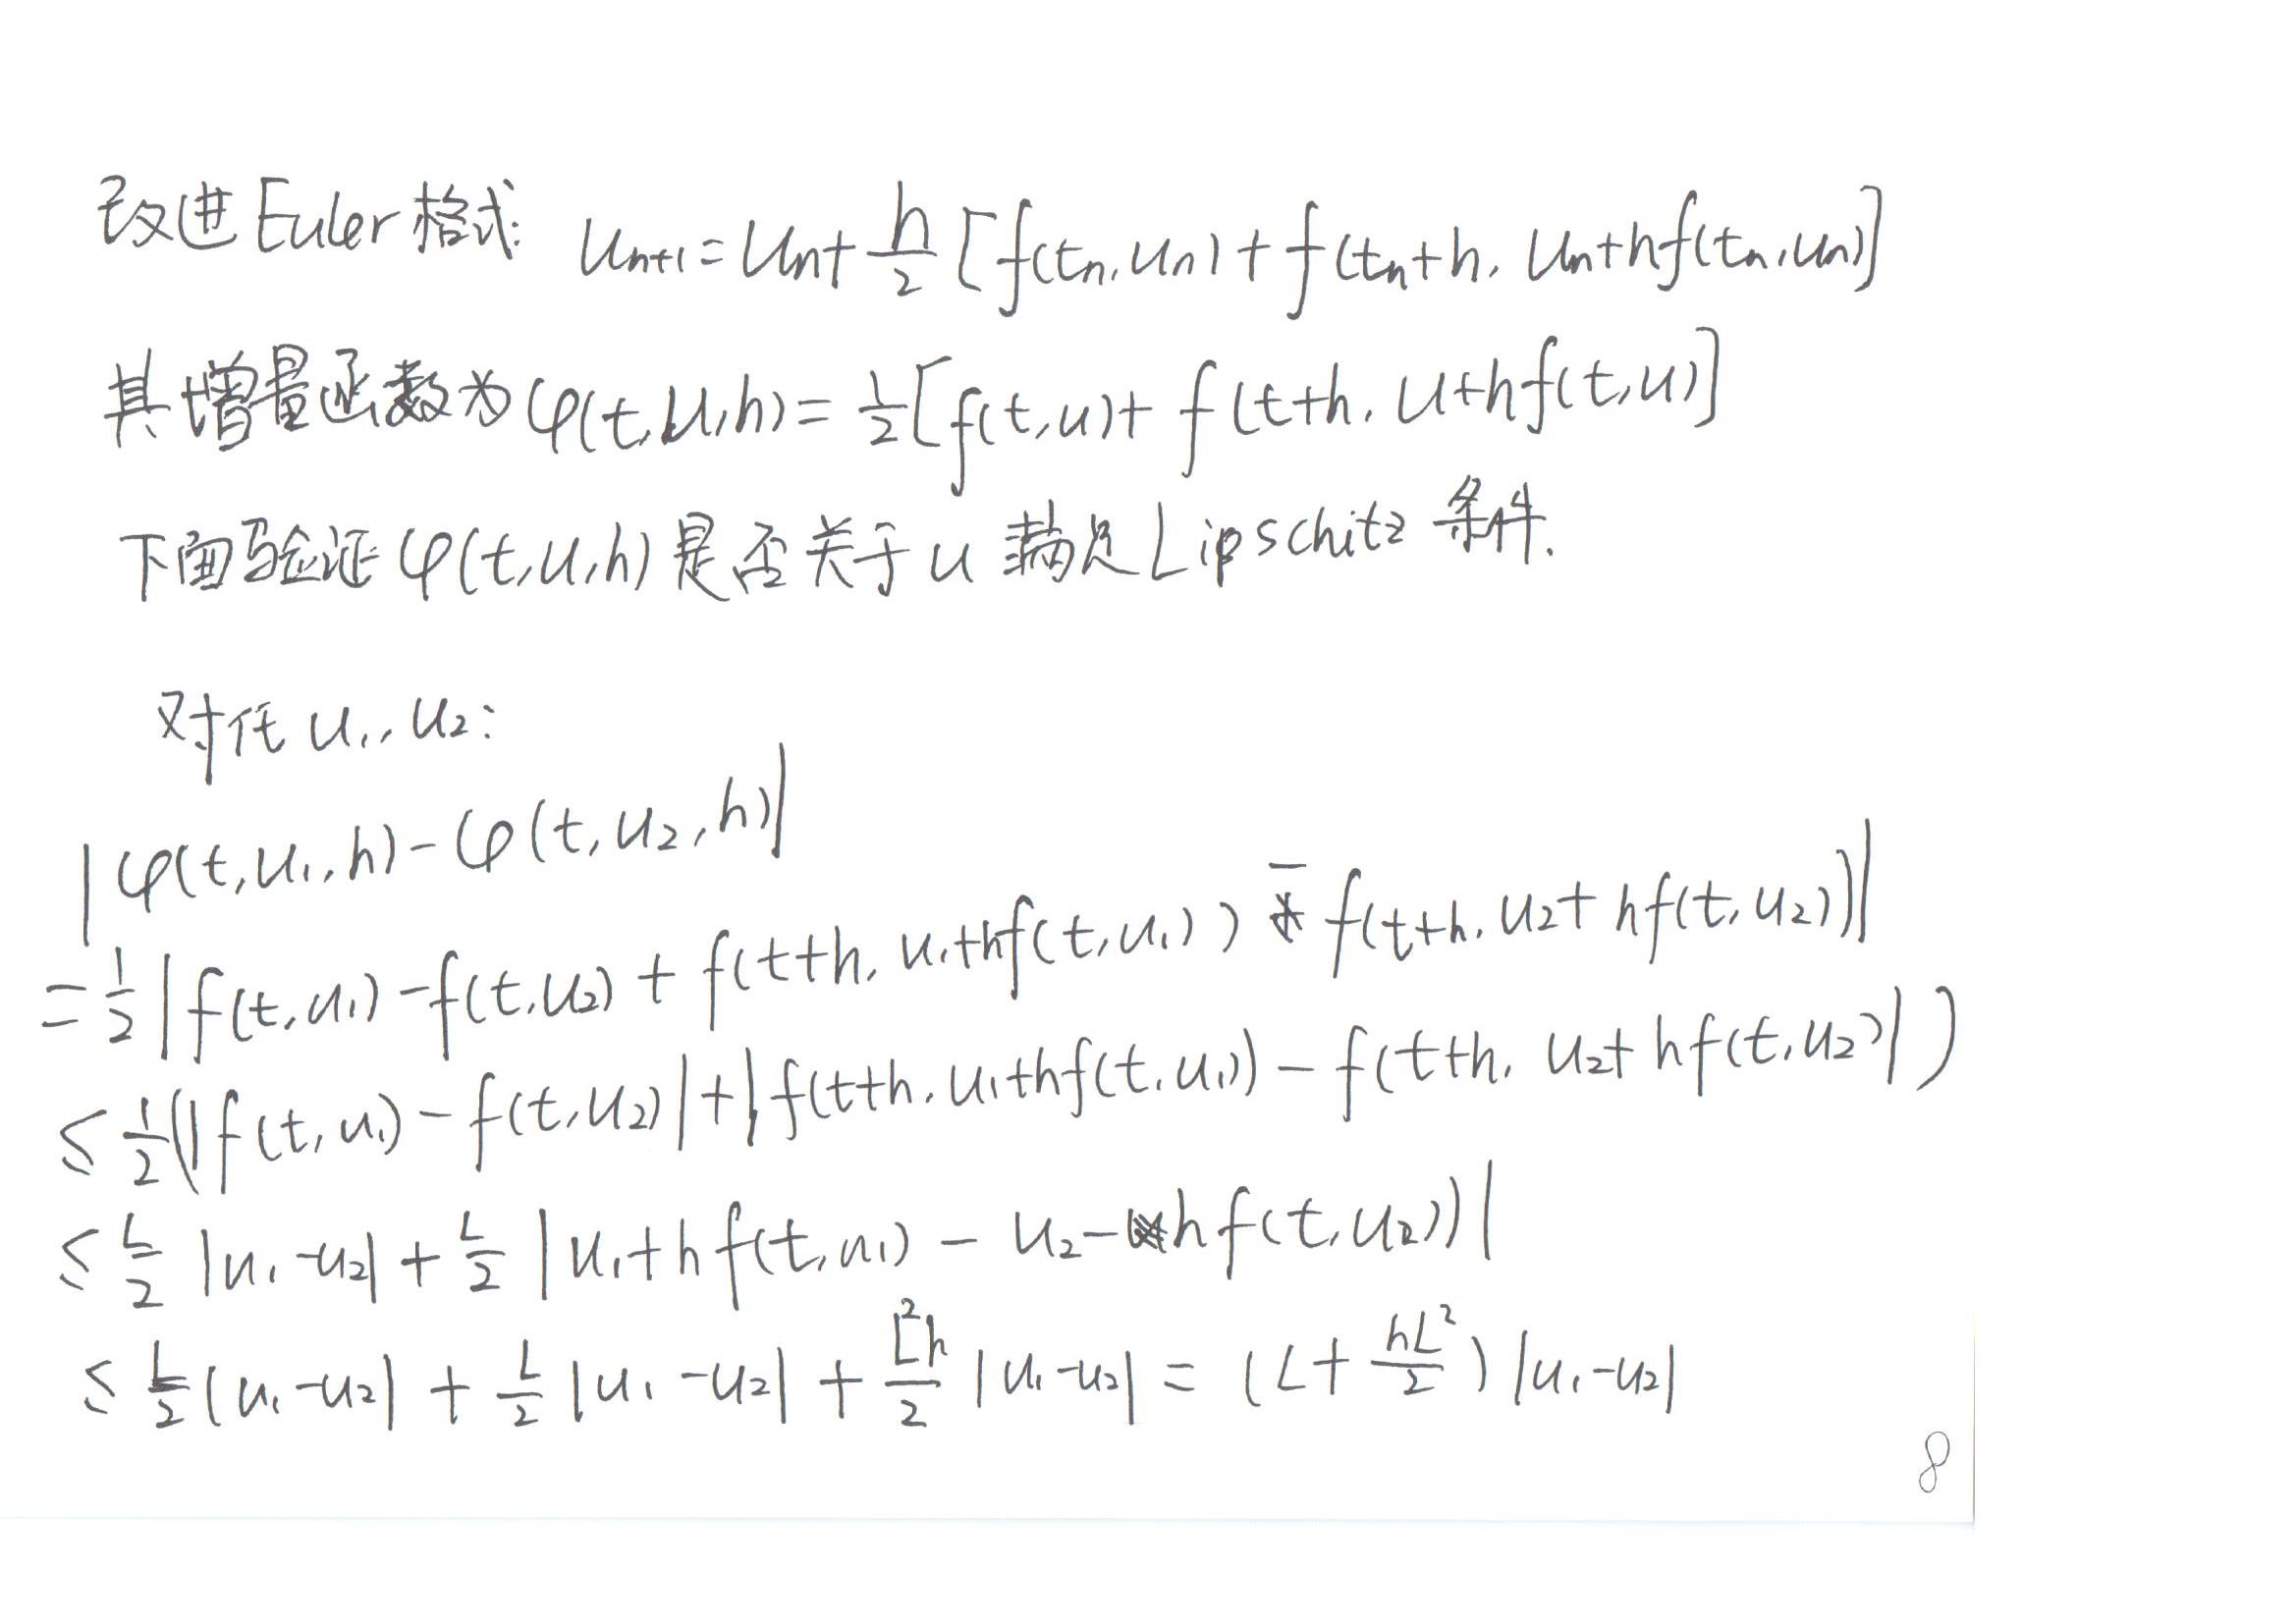 改进Euler格式: Un+1=Un+h/2[f(tn,un)+f(tn+h,Un+hf(tn,un)]
其增量函数为φ(t,u,h)=1/2[f(t,u)+f(t+h,u+hf(t,u)]
下面验证φ(t,u,h)是否关于u满足Lipschitz条件.
对任u₁,u₂:
|φ(t,u₁,h)-φ(t,u₂,h)|
=1/2|f(t,u₁)-f(t,u₂)+f(t+h,u₁+hf(t,u₁))-f(t+h,u₂+hf(t,u₂))|
≤1/2(|f(t,u₁)-f(t,u₂)|+|f(t+h,u₁+hf(t,u₁))-f(t+h,u₂+hf(t,u₂)|)
≤L/2|u₁-u₂|+L/2|u₁+hf(t,u₁)-u₂-hf(t,u₂))|
≤L/2|u₁-u₂|+L/2|u₁-u₂|+L²h/2|u₁-u₂|=(L+hL²/2)|u₁-u₂|
8